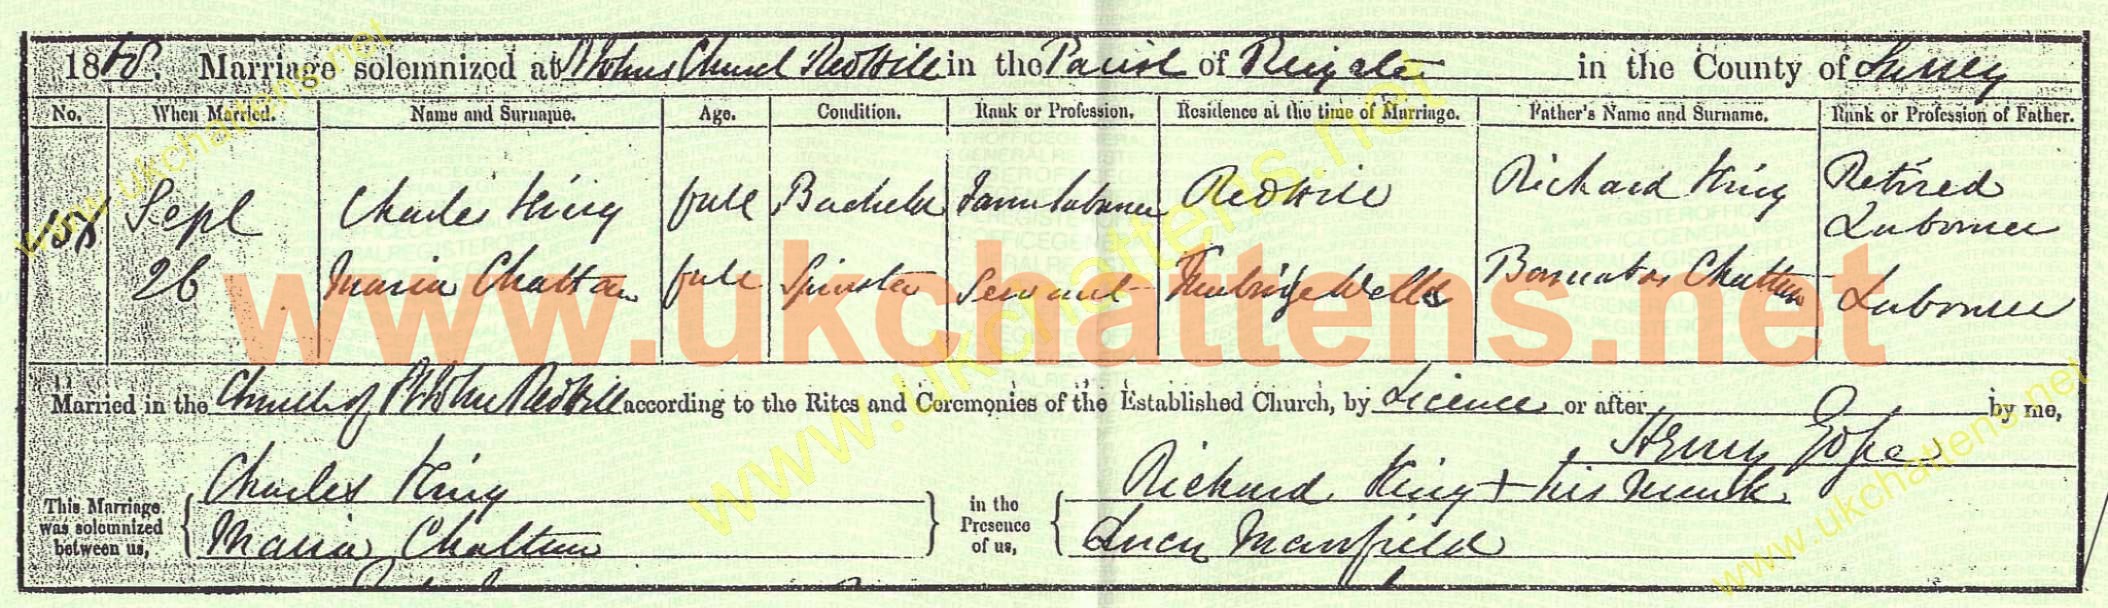 1868. Marriage solemnized at St Johns Church Redhill in the Parish of Reigate in the County of Surrey
No. When Married. Name and Surname. Age. Condition. Rank or Profession. Residence at the time of Marriage. Father's Name and Surname. Rank or Profession of Father.
158 Sept 26 Charles King full Bachelor Farm Labourer Redhill Richard King Retired Labourer
Maria Chatten full Spinster Servant Tunbridge Wells Barnabas Chatten Labourer
www.ukchattens.net
Married in the Church of St John Redhill according to the Rites and Ceremonies of the Established Church, by Licence or after by me,
Henry Gosse
This Marriage was solemnized between us,
Charles King
Maria Chatten
in the Presence of us,
Richard King + his mark
Lucy Manfield
www.ukchattens.net
www.ukchattens.net
www.ukchattens.net